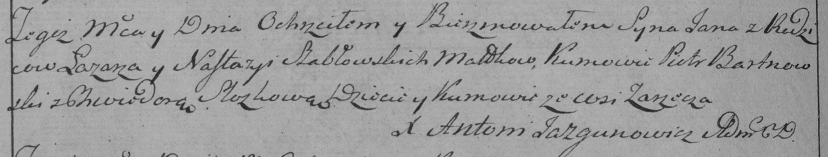 Tegoż Mca y Dnia Ochrzciłem y Bierzmowałem Syna Jana z Rodzi
cow Łazarza y Nastazyi Stabłowskich Małżkow, Kumowie Piotr Bartnow
ski z Chwiedorą Słozkową, Dziecie y Kumowie ze wsi Zarzecza
X Antoni Jazgunowicz